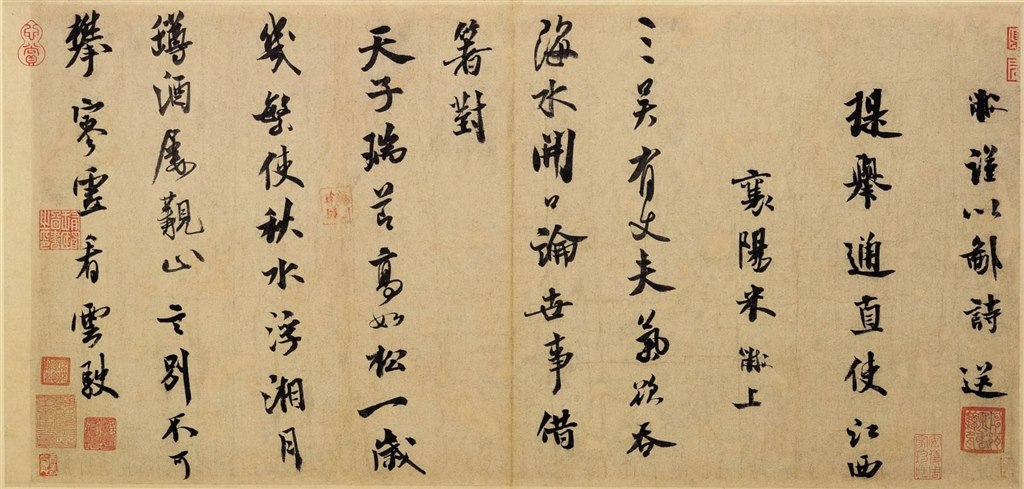 黻謹以鄙詩送
提舉通直使江西
襄陽米黻上
三吳有丈夫氣欲吞
海水開口論世事借
箸對
天子瑞節高如松一歲
幾繁使秋水浮湘月
罇酒屢觀山言別不可
攀寥虛看雲駛